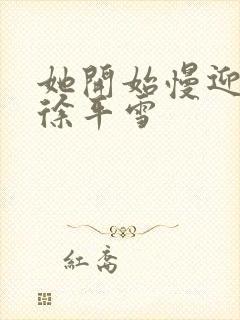 她開始慢迎
徐平雪
紅喬